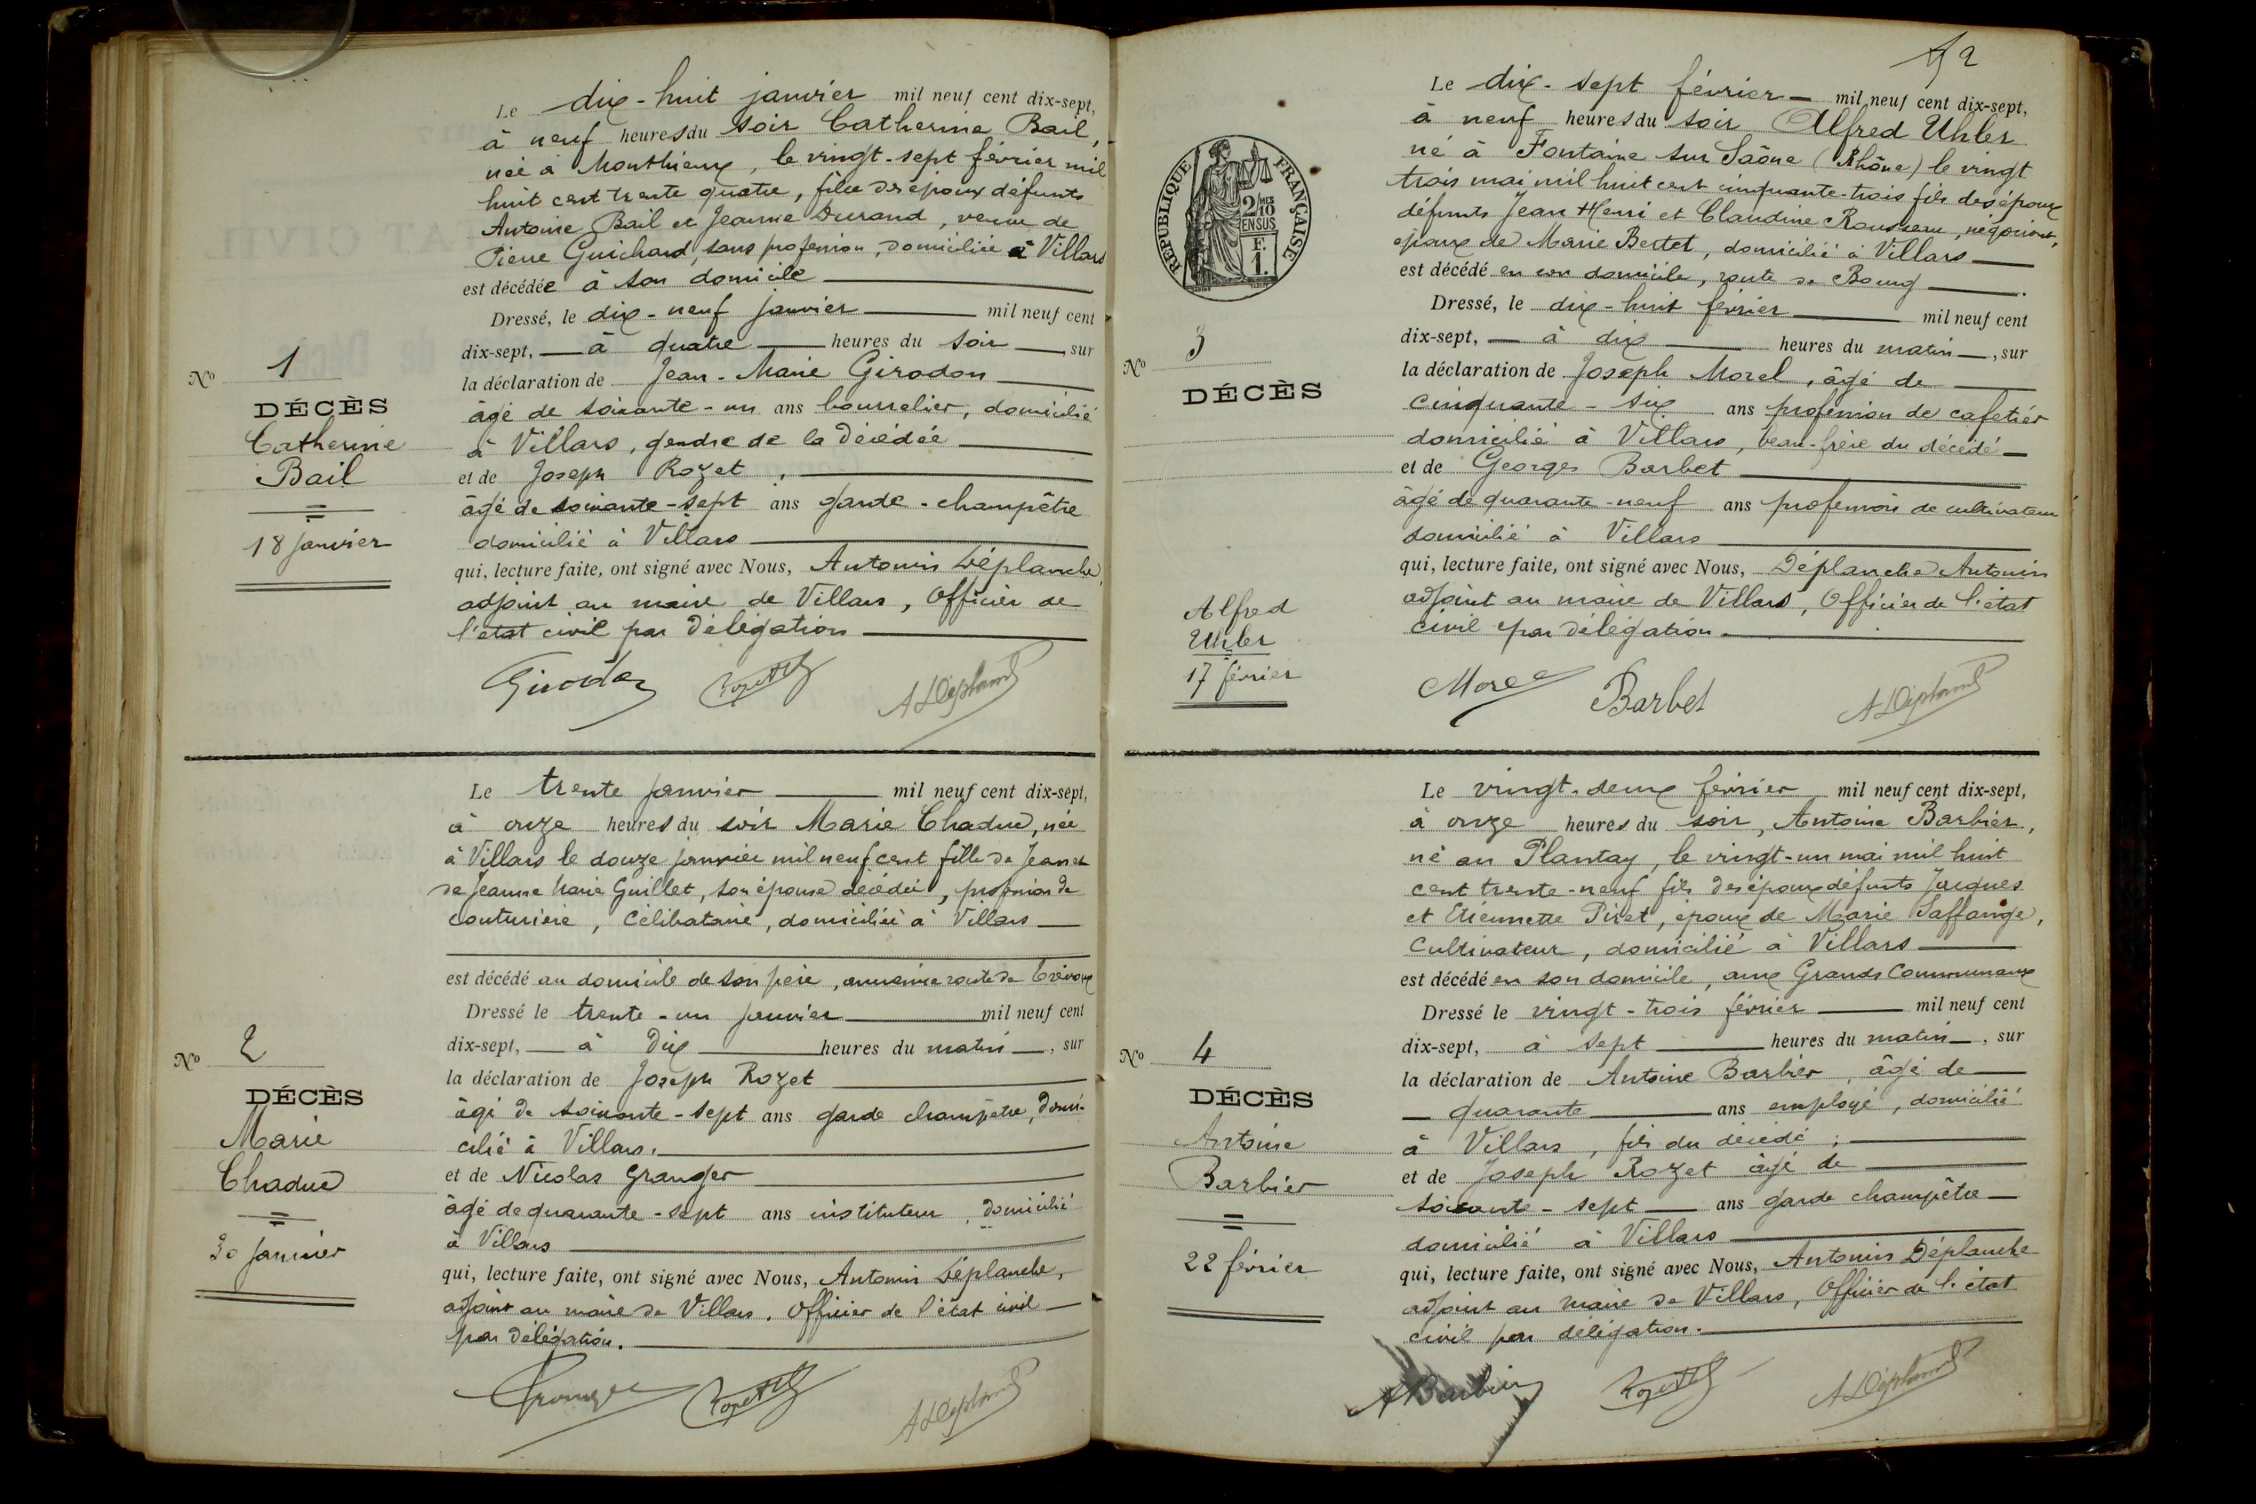 Le dix-huit janvier mil neuf cent dix-sept,
à neuf heures du soir Catherine Bail,
née à Monthieux, le vingt-sept février mil
huit cent trente quatre, fille des époux défunts
Antoine Bail et Jeanne Durand, veuve de
Pierre Guichard, sans profession, domiciliée à Villars
est décédée à son domicile
Dressé, le dix-neuf janvier mil neuf cent
dix-sept, à quatre heures du soir, sur
la déclaration de Jean-Marie Girodon
âgé de soixante-un ans bourrelier, domicilié
à Villars, gendre de la décédée
et de Joseph Rozet,
âgé de soixante-sept ans garde-champêtre
domicilié à Villars
qui, lecture faite, ont signé avec Nous, Antonin Déplanche,
adjoint au maire de Villars, Officier de
l'état civil par délégation
Girodon Rozet A Déplanche
No 1
DÉCÈS
Catherine
Bail
18 janvier
Le trente janvier mil neuf cent dix-sept,
à onze heures du soir Marie Chadud, née
à Villars le douze janvier mil neuf cent fille de Jean et
de Jeanne Marie Guillet, son épouse décédée, profession de
couturière, célibataire, domiciliée à Villars
est décédé au domicile de son père, ancienne route de Trévoux
Dressé le trente-un janvier mil neuf cent
dix-sept, à dix heures du matin, sur
la déclaration de Joseph Rozet
âgé de soixante-sept ans garde champêtre, domi-
cilié à Villars.
et de Nicolas Granger
âgé de quarante-sept ans instituteur, domicilié
à Villars
qui, lecture faite, ont signé avec Nous, Antonin Déplanche,
adjoint au maire de Villars, Officier de l'état civil
par délégation.
Granger Rozet A Déplanche
No 2
DÉCÈS
Marie
Chadud
30 janvier
2
Le dix-sept février mil neuf cent dix-sept,
à neuf heures du soir Alfred Uhler
né à Fontaine sur Saône (Rhône) le vingt
trois mai mil huit cent cinquante-trois fils des époux
défunts Jean Henri et Claudine Rousseau, négociant,
époux de Marie Bertet, domicilié à Villars
est décédé en son domicile, route de Bourg
Dressé, le dix-huit février mil neuf cent
dix-sept, à dix heures du matin, sur
la déclaration de Joseph Morel, âgé de
cinquante-six ans profession de cafetier
domicilié à Villars, beau-frère du décédé
et de Georges Barbet
âgé de quarante-neuf ans profession de cultivateur
domicilié à Villars
qui, lecture faite, ont signé avec Nous, Déplanche Antonin
adjoint au maire de Villars, Officier de l'état
civil par délégation.
Morel Barbet A Déplanche
RÉPUBLIQUE FRANÇAISE
2/10
EN SUS
F.
1.
No 3
DÉCÈS
Alfred
Uhler
17 février
Le vingt-deux février mil neuf cent dix-sept,
à onze heures du soir, Antoine Barbier,
né au Plantay, le vingt-un mai mil huit
cent trente-neuf fils des époux défunts Jacques
et Etiennette Piret, époux de Marie Saffange,
cultivateur, domicilié à Villars
est décédé en son domicile, aux Grands Communaux
Dressé le vingt-trois février mil neuf cent
dix-sept, à sept heures du matin, sur
la déclaration de Antoine Barbier, âgé de
quarante ans employé, domicilié
à Villars, fils du décédé;
et de Joseph Rozet âgé de
soixante-sept ans garde champêtre
domicilié à Villars
qui, lecture faite, ont signé avec Nous, Antonin Déplanche
adjoint au maire de Villars, Officier de l'état
civil par délégation.
A Barbier Rozet A Déplanche
No 4
DÉCÈS
Antoine
Barbier
22 février